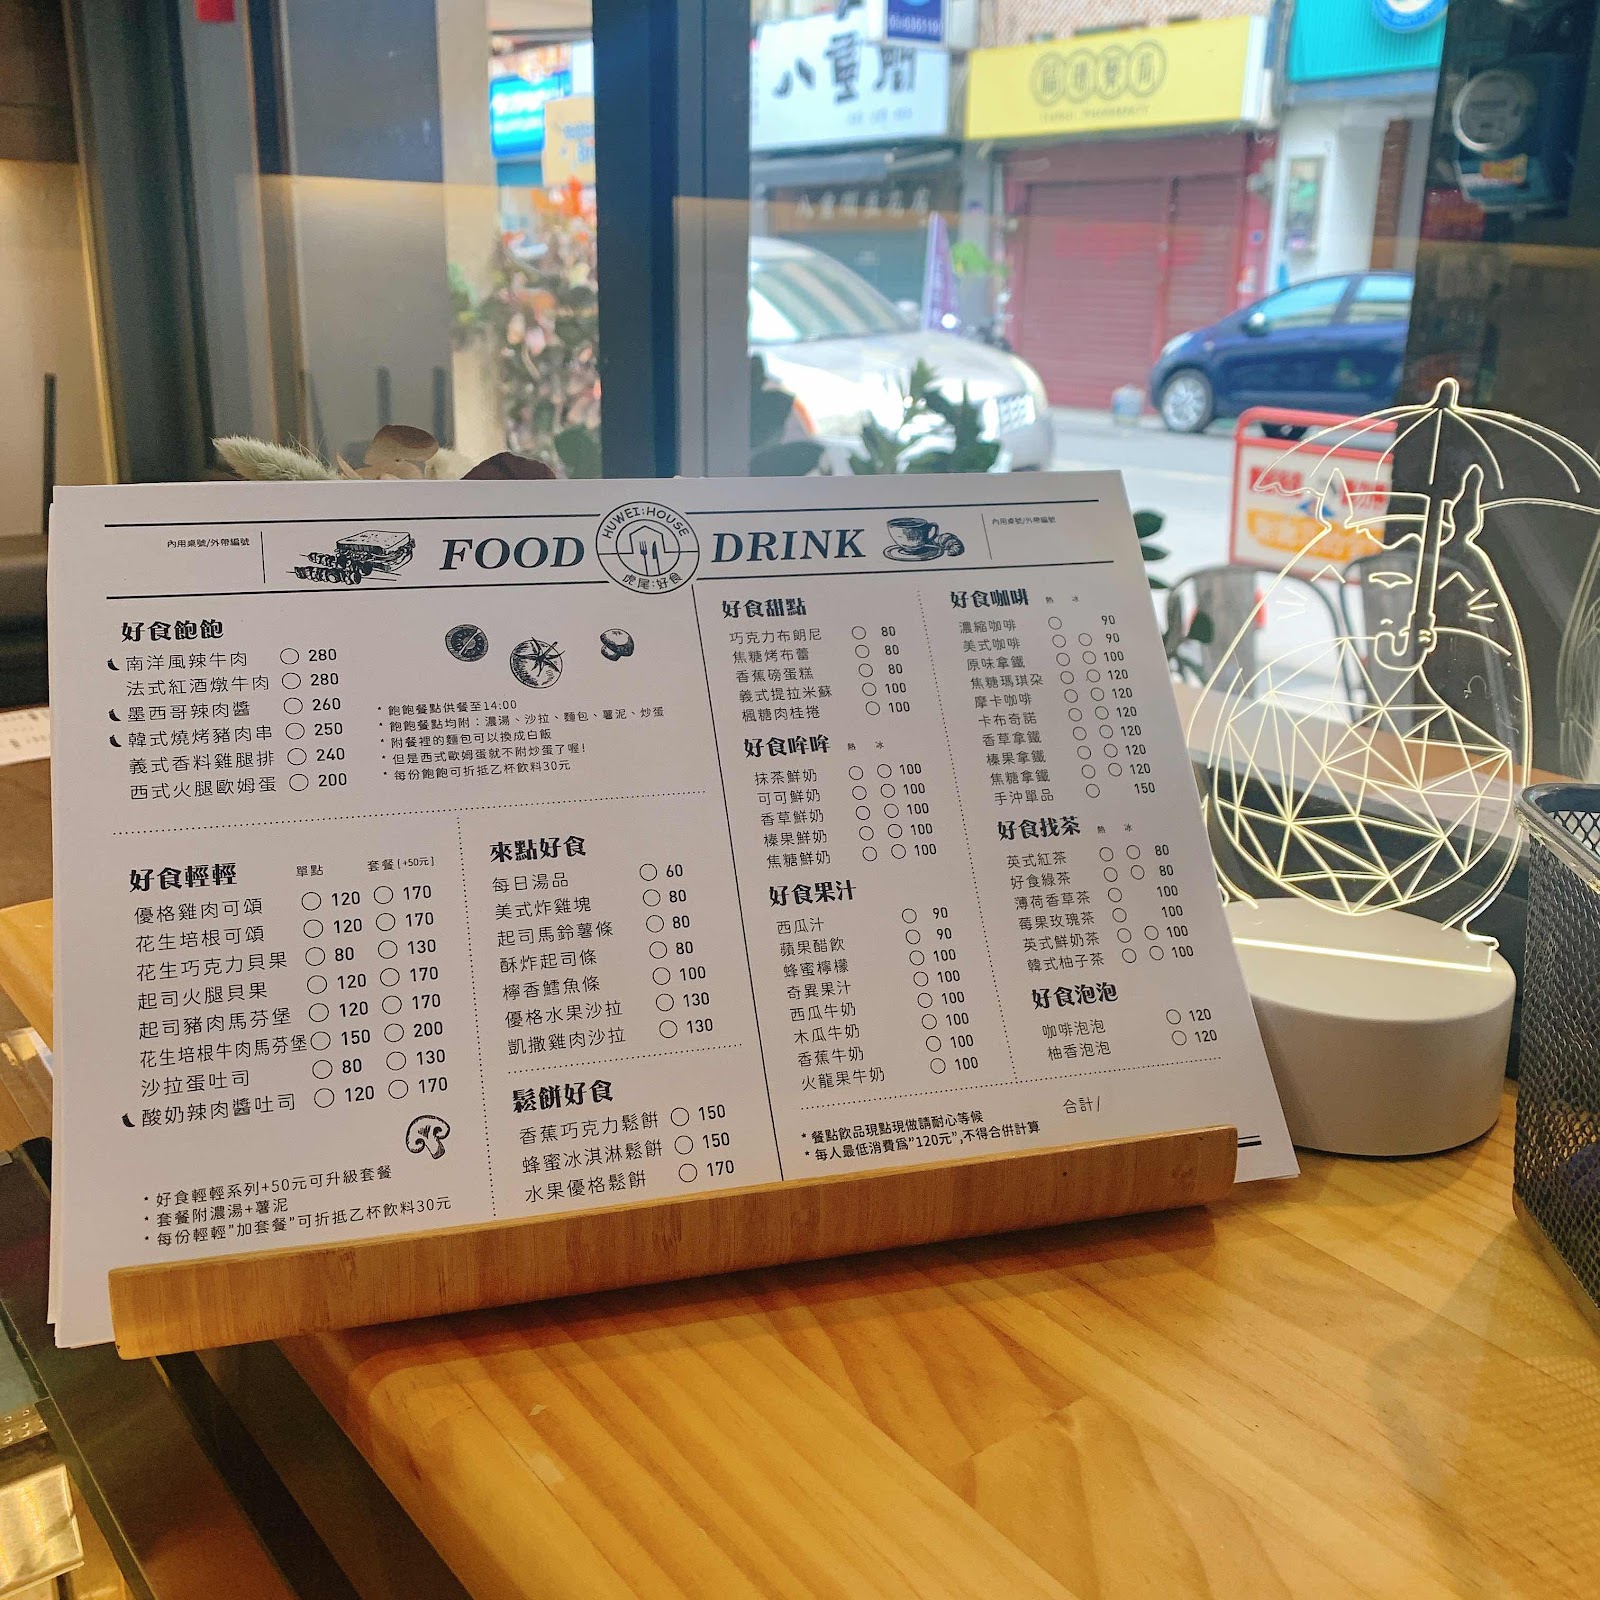 八重間
TUNGI PHARMACY
內用桌號/外帶編號
FOOD
HUWEI:HOUSE
虎尾:好食
DRINK
內用桌號/外帶編號
好食飽飽
南洋風辣牛肉 280
法式紅酒燉牛肉 280
墨西哥辣肉醬 260
韓式燒烤豬肉串 250
義式香料雞腿排 240
西式火腿歐姆蛋 200
* 飽飽餐點供餐至14:00
* 飽飽餐點均附：濃湯、沙拉、麵包、薯泥、炒蛋
* 附餐裡的麵包可以換成白飯
* 但是西式歐姆蛋就不附炒蛋了喔!
* 每份飽飽可折抵乙杯飲料30元
好食輕輕 單點 套餐(+50元)
優格雞肉可頌 120 170
花生培根可頌 120 170
花生巧克力貝果 80 130
起司火腿貝果 120 170
起司豬肉馬芬堡 120 170
花生培根牛肉馬芬堡 150 200
沙拉蛋吐司 80 130
酸奶辣肉醬吐司 120 170
* 好食輕輕系列+50元可升級套餐
* 套餐附濃湯+薯泥
* 每份輕輕"加套餐"可折抵乙杯飲料30元
來點好食
每日湯品 60
美式炸雞塊 80
起司馬鈴薯條 80
酥炸起司條 80
檸香鱈魚條 100
優格水果沙拉 130
凱撒雞肉沙拉 130
鬆餅好食
香蕉巧克力鬆餅 150
蜂蜜冰淇淋鬆餅 150
水果優格鬆餅 170
好食甜點
巧克力布朗尼 80
焦糖烤布蕾 80
香蕉磅蛋糕 80
義式提拉米蘇 100
楓糖肉桂捲 100
好食哞哞 熱 冰
抹茶鮮奶 100
可可鮮奶 100
香草鮮奶 100
榛果鮮奶 100
焦糖鮮奶 100
好食果汁
西瓜汁 90
蘋果醋飲 90
蜂蜜檸檬 100
奇異果汁 100
西瓜牛奶 100
木瓜牛奶 100
香蕉牛奶 100
火龍果牛奶 100
好食咖啡 熱 冰
濃縮咖啡 90
美式咖啡 90
原味拿鐵 100
焦糖瑪琪朵 120
摩卡咖啡 120
卡布奇諾 120
香草拿鐵 120
榛果拿鐵 120
焦糖拿鐵 120
手沖單品 150
好食找茶 熱 冰
英式紅茶 80
好食綠茶 80
薄荷香草茶 100
莓果玫瑰茶 100
英式鮮奶茶 100
韓式柚子茶 100
好食泡泡
咖啡泡泡 120
柚香泡泡 120
* 餐點飲品現點現做請耐心等候
* 每人最低消費為"120元",不得合併計算
合計/